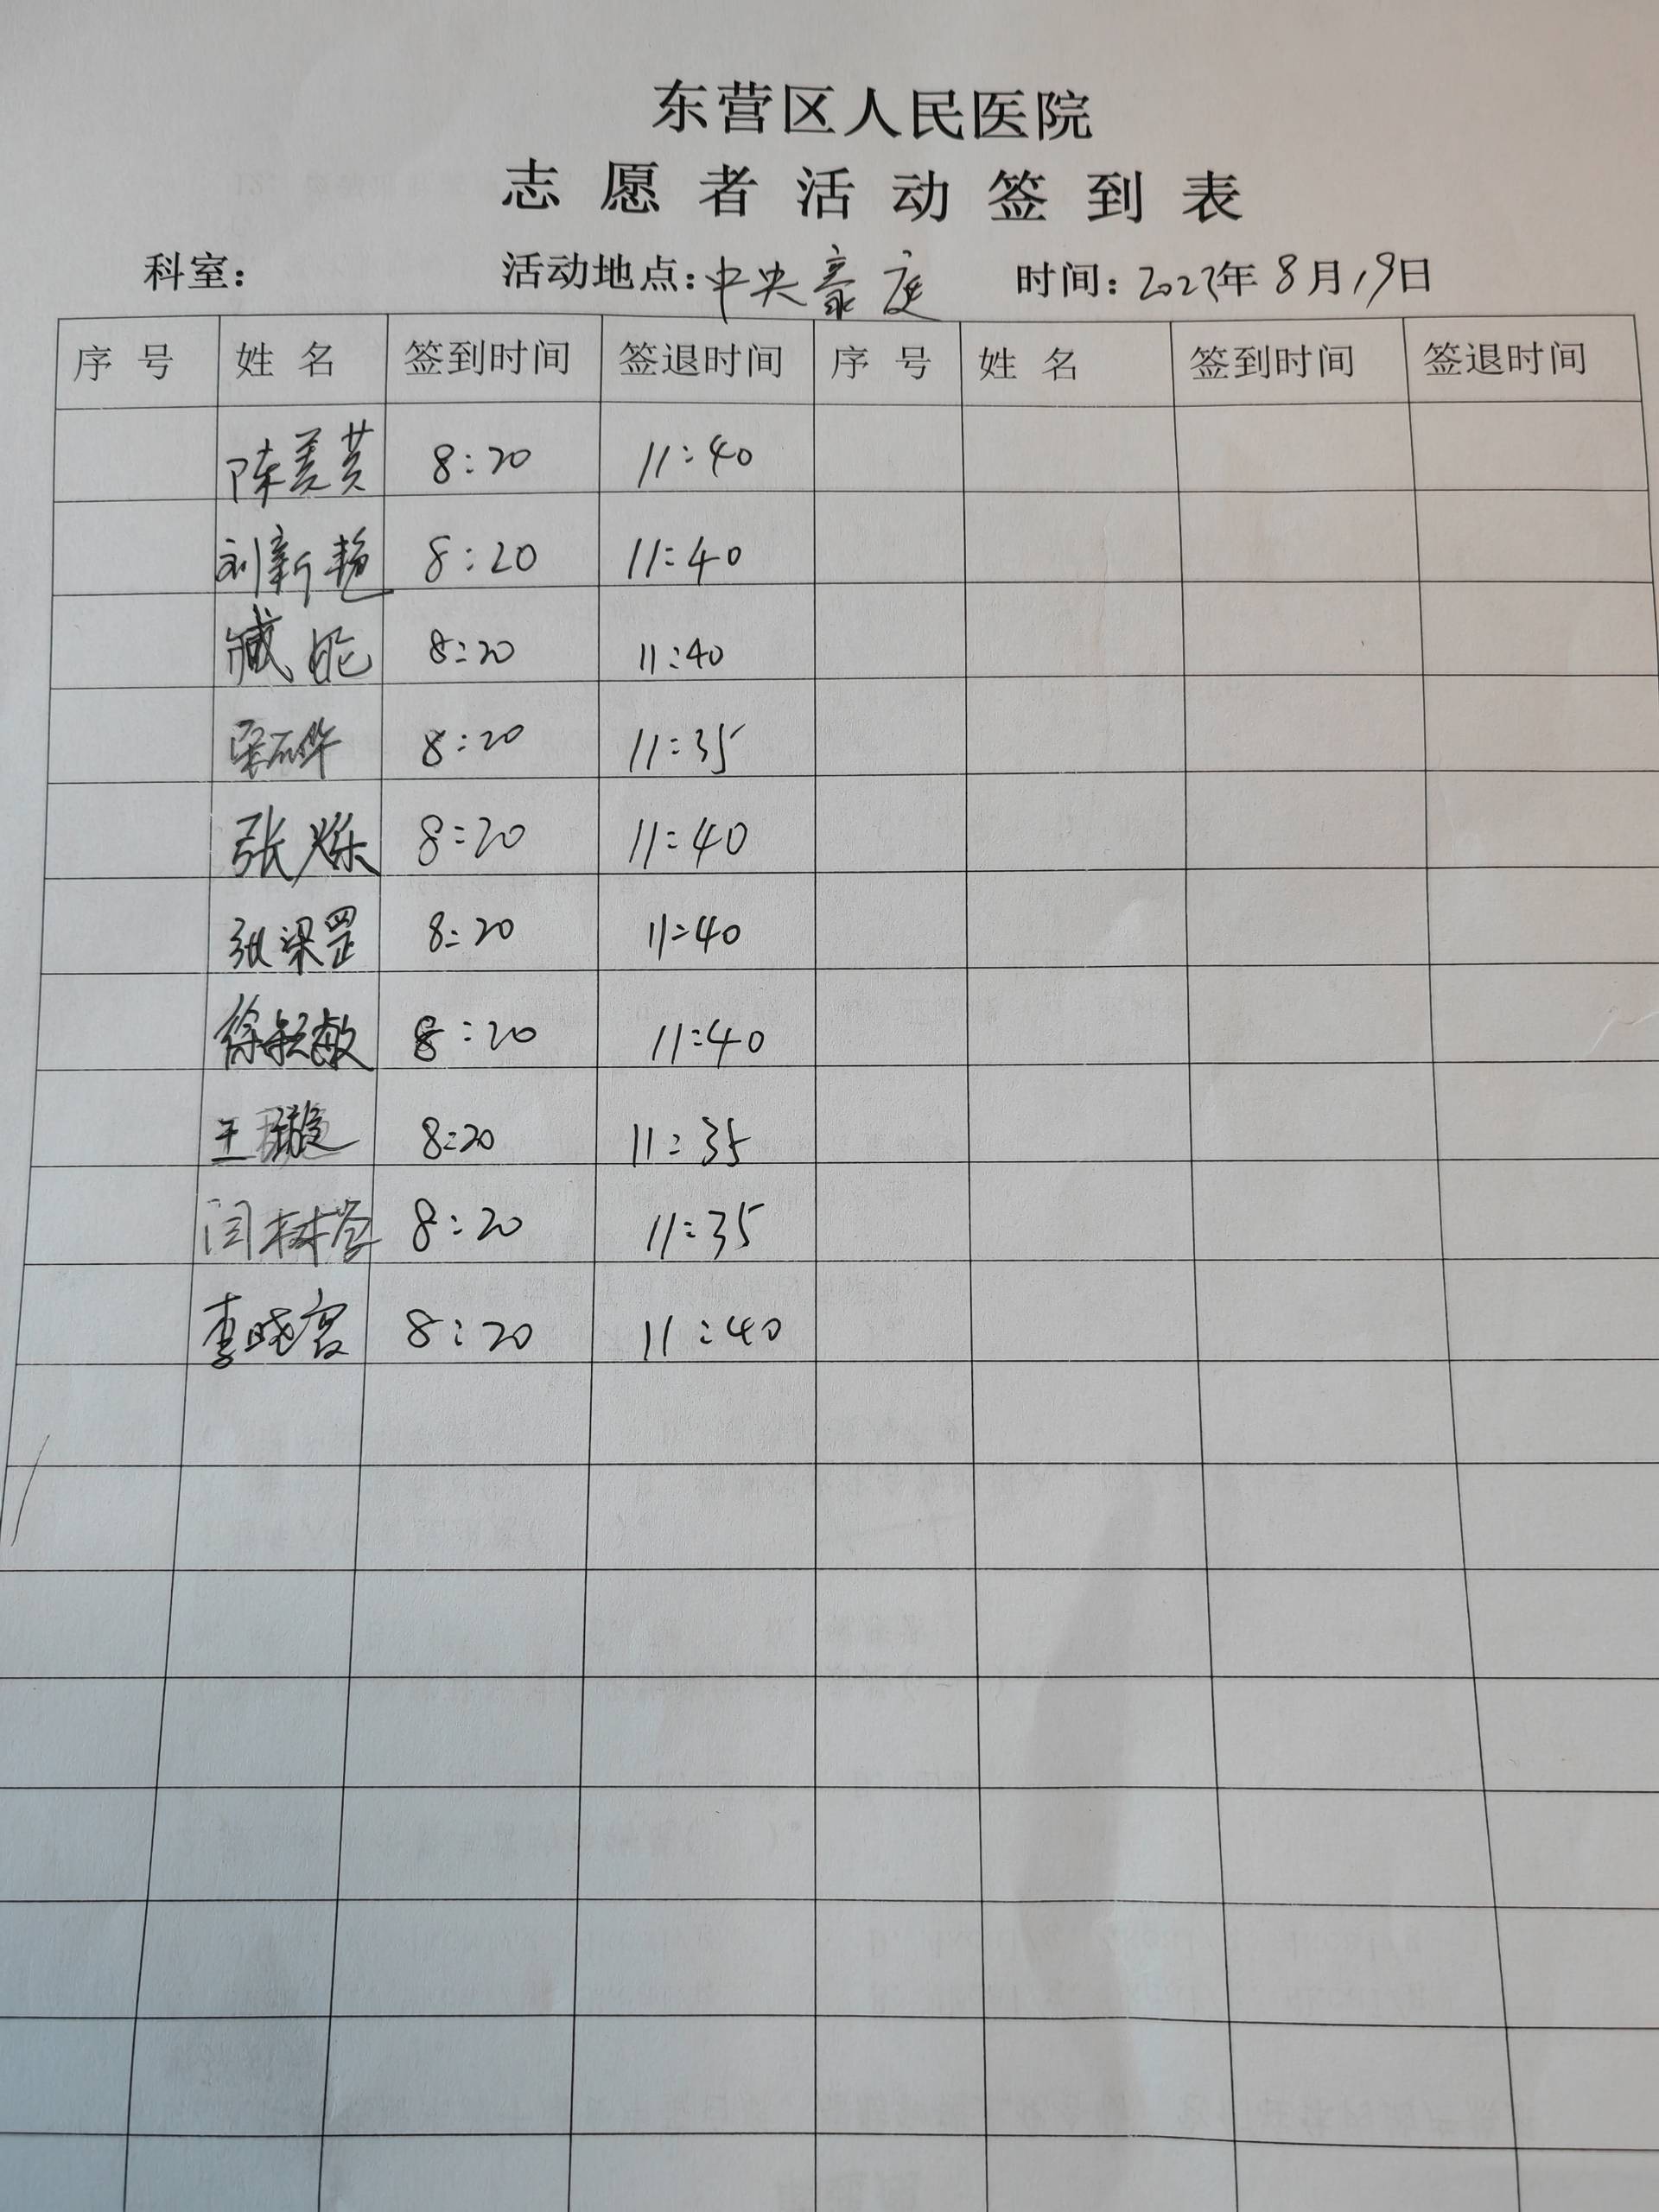 东营区人民医院
志愿者活动签到表
科室： 活动地点：中央豪庭 时间：2023年8月19日
序号 姓名 签到时间 签退时间 序号 姓名 签到时间 签退时间
陈美芸 8:20 11:40
刘新艳 8:20 11:40
臧 8:20 11:40
8:20 11:35
张烁 8:20 11:40
张梁罡 8:20 11:40
徐毓敏 8:20 11:40
王璇 8:20 11:35
闫树学 8:20 11:35
李晓 8:20 11:40